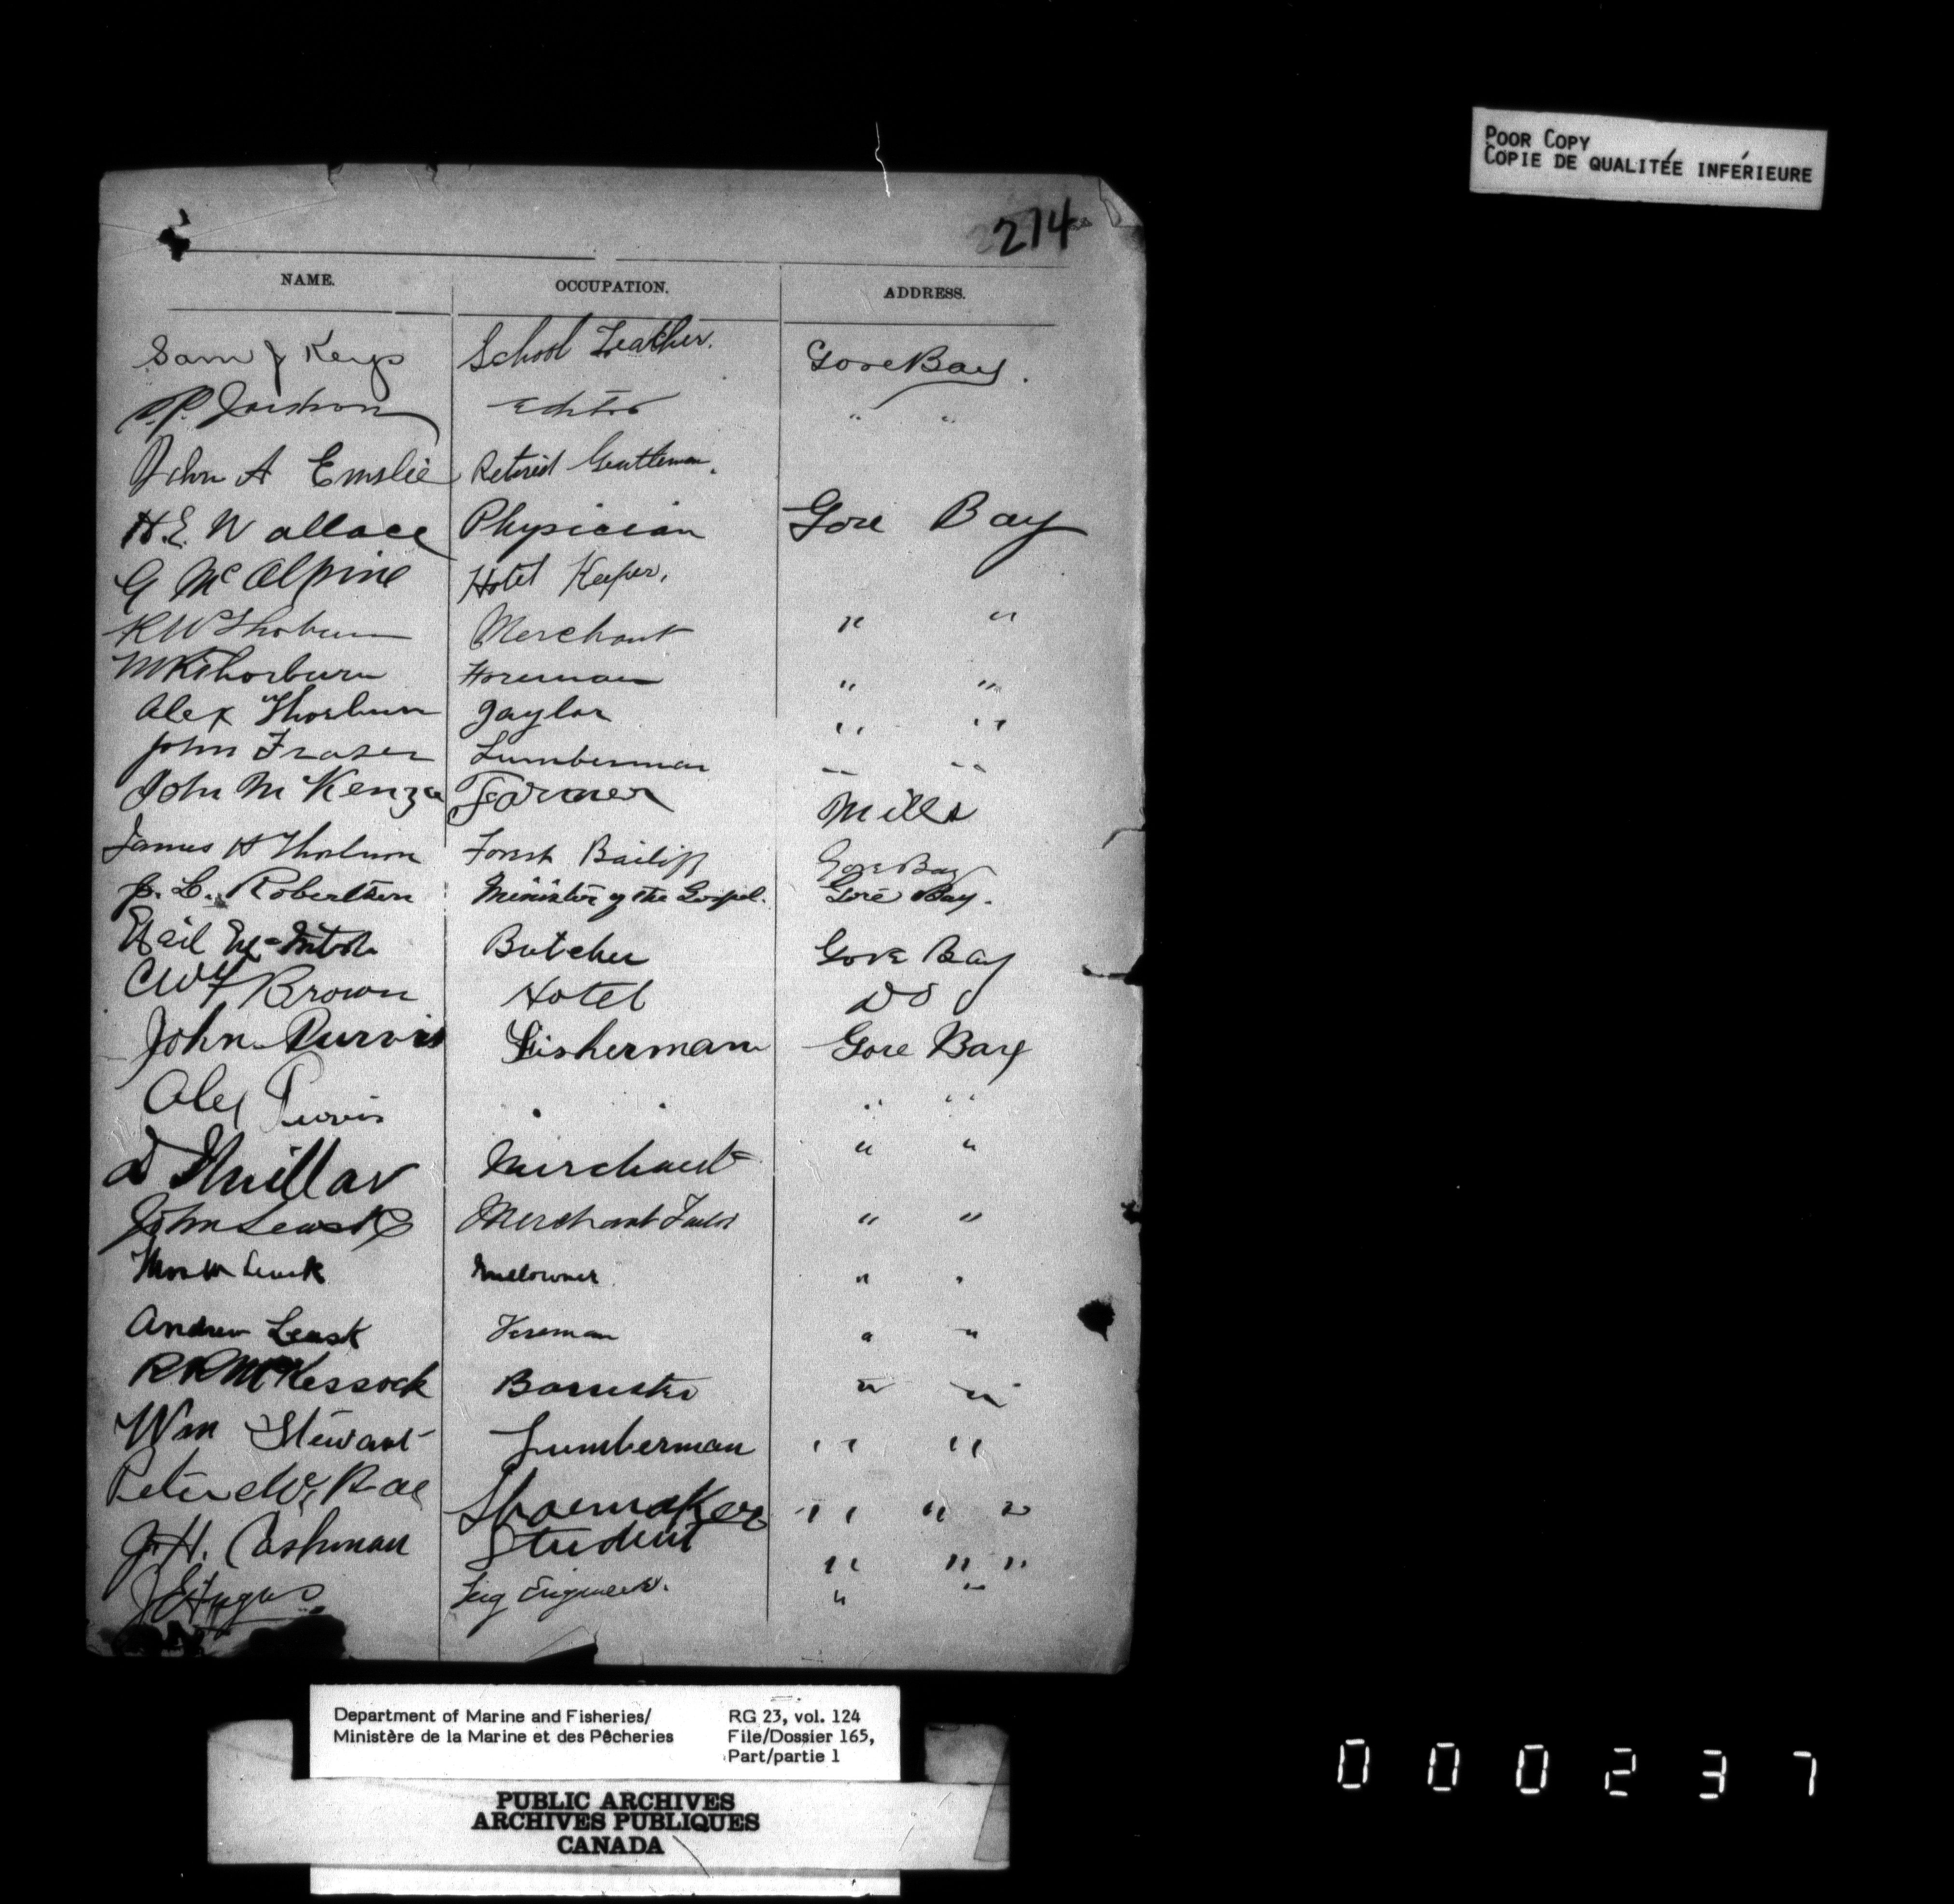 POOR COPY
COPIE DE QUALITÉE INFÉRIEURE
274
NAME. OCCUPATION. ADDRESS.
Sam J Keys School Teacher. Gore Bay.
Editor " "
John A Emslie Retired Gentleman.
H.E. Wallace Physician Gore Bay
G McAlpine Hotel Keeper.
R W Thorburn Merchant " "
M K Thorburn Foreman " "
Alex Thorburn Jaylor " "
John Fraser Lumberman " "
John McKenzie Farmer Mills
James H Thorburn Forest Bailiff Gore Bay
J. L. Robertson Minister of the Gospel. Gore Bay.
McIntosh Butcher Gore Bay
Brown Hotel Do
John Purvis Fisherman Gore Bay
Alex Purvis " "
D Millar Merchant " "
John Leask Merchant Tailor " "
Leask Millowner " "
Andrew Leask Foreman " "
R R McKessock Barrister " "
Wm Stewart Lumberman " "
Peter McRae Shoemaker " " "
J. H. Cashman Student " " "
Tug Engineer. " "
Department of Marine and Fisheries/ RG 23, vol. 124
Ministère de la Marine et des Pêcheries File/Dossier 165,
Part/partie 1
PUBLIC ARCHIVES
ARCHIVES PUBLIQUES
CANADA
000237